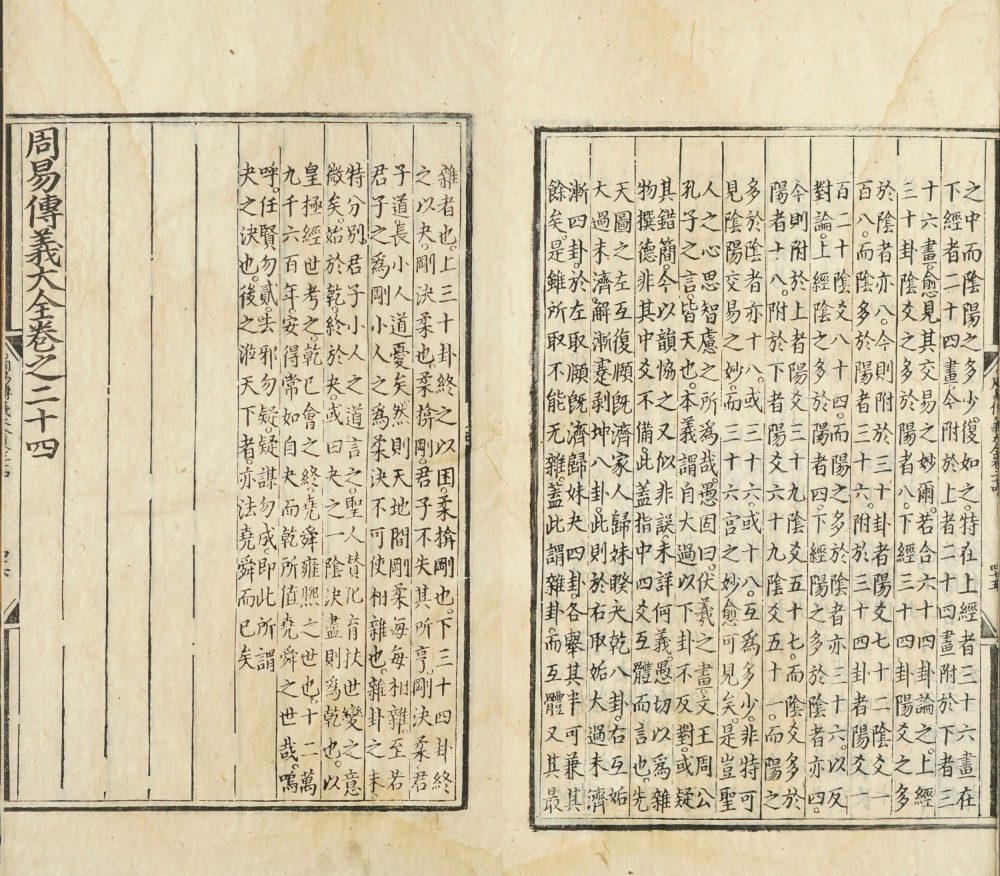 之中而陰陽之多少復如之特在上經者三十六畫在
下經者二十四畫今附於上者二十四畫附於下者三
十六畫愈見其交易之妙爾若合六十四卦論之上經
三十卦陰爻之多於陽者八下經三十四卦陽爻之多
於陰者亦八今則附於三十卦者陽爻七十二陰爻一
百八而陰多於陽者三十六附於三十四卦者陽爻一
百二十陰爻八十四而陽之多於陰者亦三十六以反
對論上經陰之多於陽者四下經陽之多於陰者亦四
今則附於上者陽爻三十九陰爻五十七而陰爻多於
陽者十八附於下者陽爻六十九陰爻五十一而陽之
多於陰者亦十八或三十六或十八互為多少非特可
見陰陽交易之妙而三十六宮之妙愈可見矣是豈聖
人之心思智慮之所為哉愚因曰伏羲之畫文王周公
孔子之言皆天也本義謂自大過以下卦不反對或疑
其錯簡今以韻協之又似非誤未詳何義愚切以為雜
物撰德非其中爻不備此蓋指中四爻互體而言也先
天圖之左互復頤既濟家人歸妹睽夬乾八卦右互姤
大過未濟解漸蹇剝坤八卦此則於右取姤大過未濟
漸四卦於左取頤既濟歸妹夬四卦各舉其半可兼其
餘矣是雖所取不能无雜蓋此謂雜卦而互體又其最
雜者也上三十卦終之以困柔揜剛也下三十四卦終
之以夬剛決柔也柔揜剛君子不失其所亨剛決柔君
子道長小人道憂矣然則天地間剛柔每每相雜至若
君子之為剛小人之為柔決不可使相雜也雜卦之末
特分別君子小人之道言之聖人贊化育扶世變之意
微矣姤於乾終於夬或曰夬之一陰決盡則為乾也以
皇極經世考之乾已會之終堯舜雍熙之世也十二萬
九千六百年安得常如自夬而乾所值堯舜之世哉嗚
呼任賢勿貳去邪勿疑疑謀勿成即此所謂
夬之決也後之治天下者亦法堯舜而已矣
周易傳義大全卷之二十四